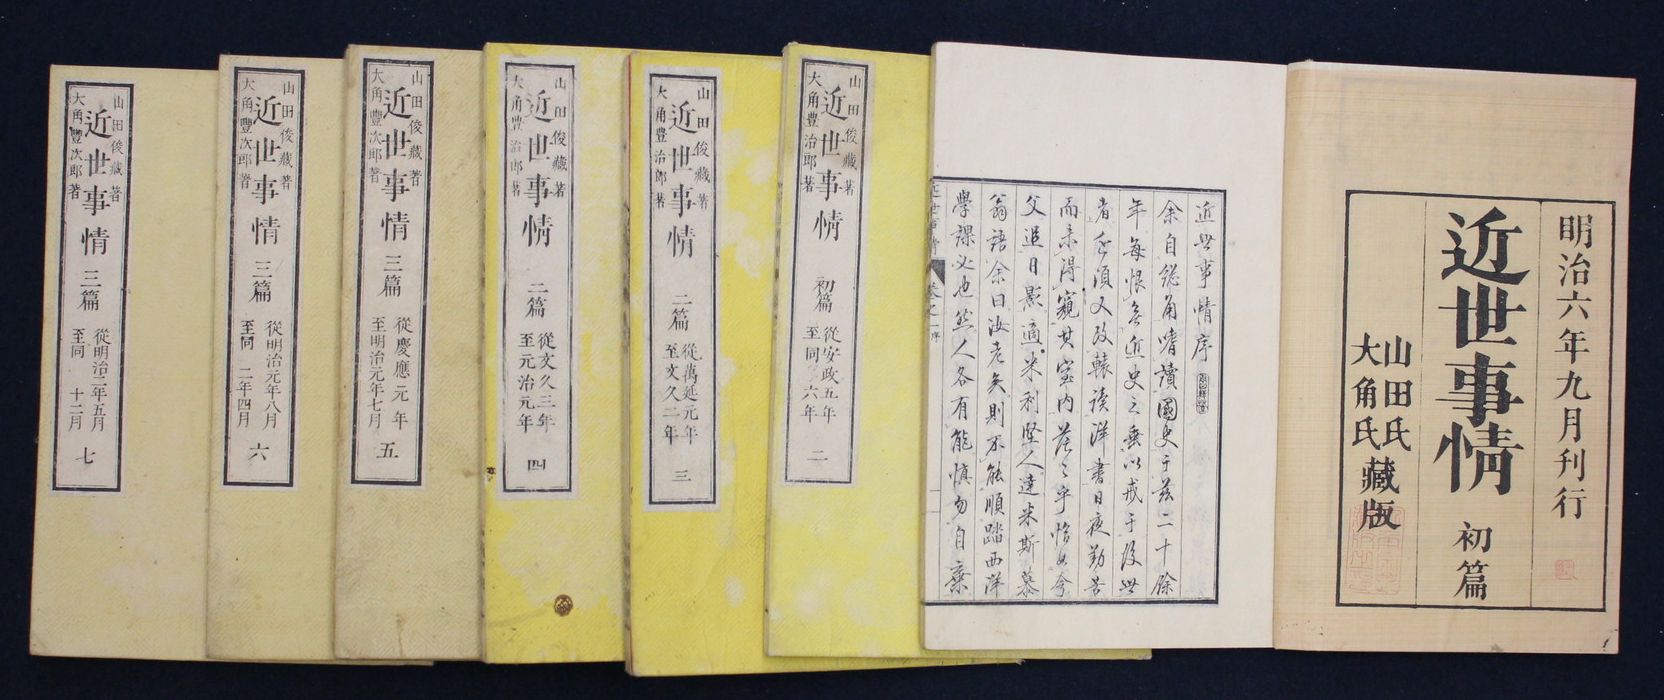 明治六年九月刊行
近世事情 初篇
山田氏
大角氏藏版
近世事情序
余自総角嗜讀國史于茲二十餘
年每恨無近史之無以戒于後世
者近須又改轅讀洋書日夜勤苦
而未得窺其室内茫之乎恰如兮
父追日影適米利堅人達米斯慕
翁語余曰汝老矣則不能順踏西洋
學課必也然人各有能慎勿自棄
近世事情 卷之一 序
山田俊藏著
大角豐治郎著
近世事情 初篇
從安政五年
至同 六年
二
山田俊藏著
大角豐治郎著
近世事情 二篇
從萬延元年
至文久二年
三
山田俊藏著
大角豐治郎著
近世事情 二篇
從文久三年
至元治元年
四
山田俊藏著
大角豐次郎著
近世事情 三篇
從慶應元年
至明治元年七月
五
山田俊藏著
大角豐次郎著
近世事情 三篇
從明治元年八月
至同 二年四月
六
山田俊藏著
大角豐次郎著
近世事情 三篇
從明治二年五月
至同 十二月
七